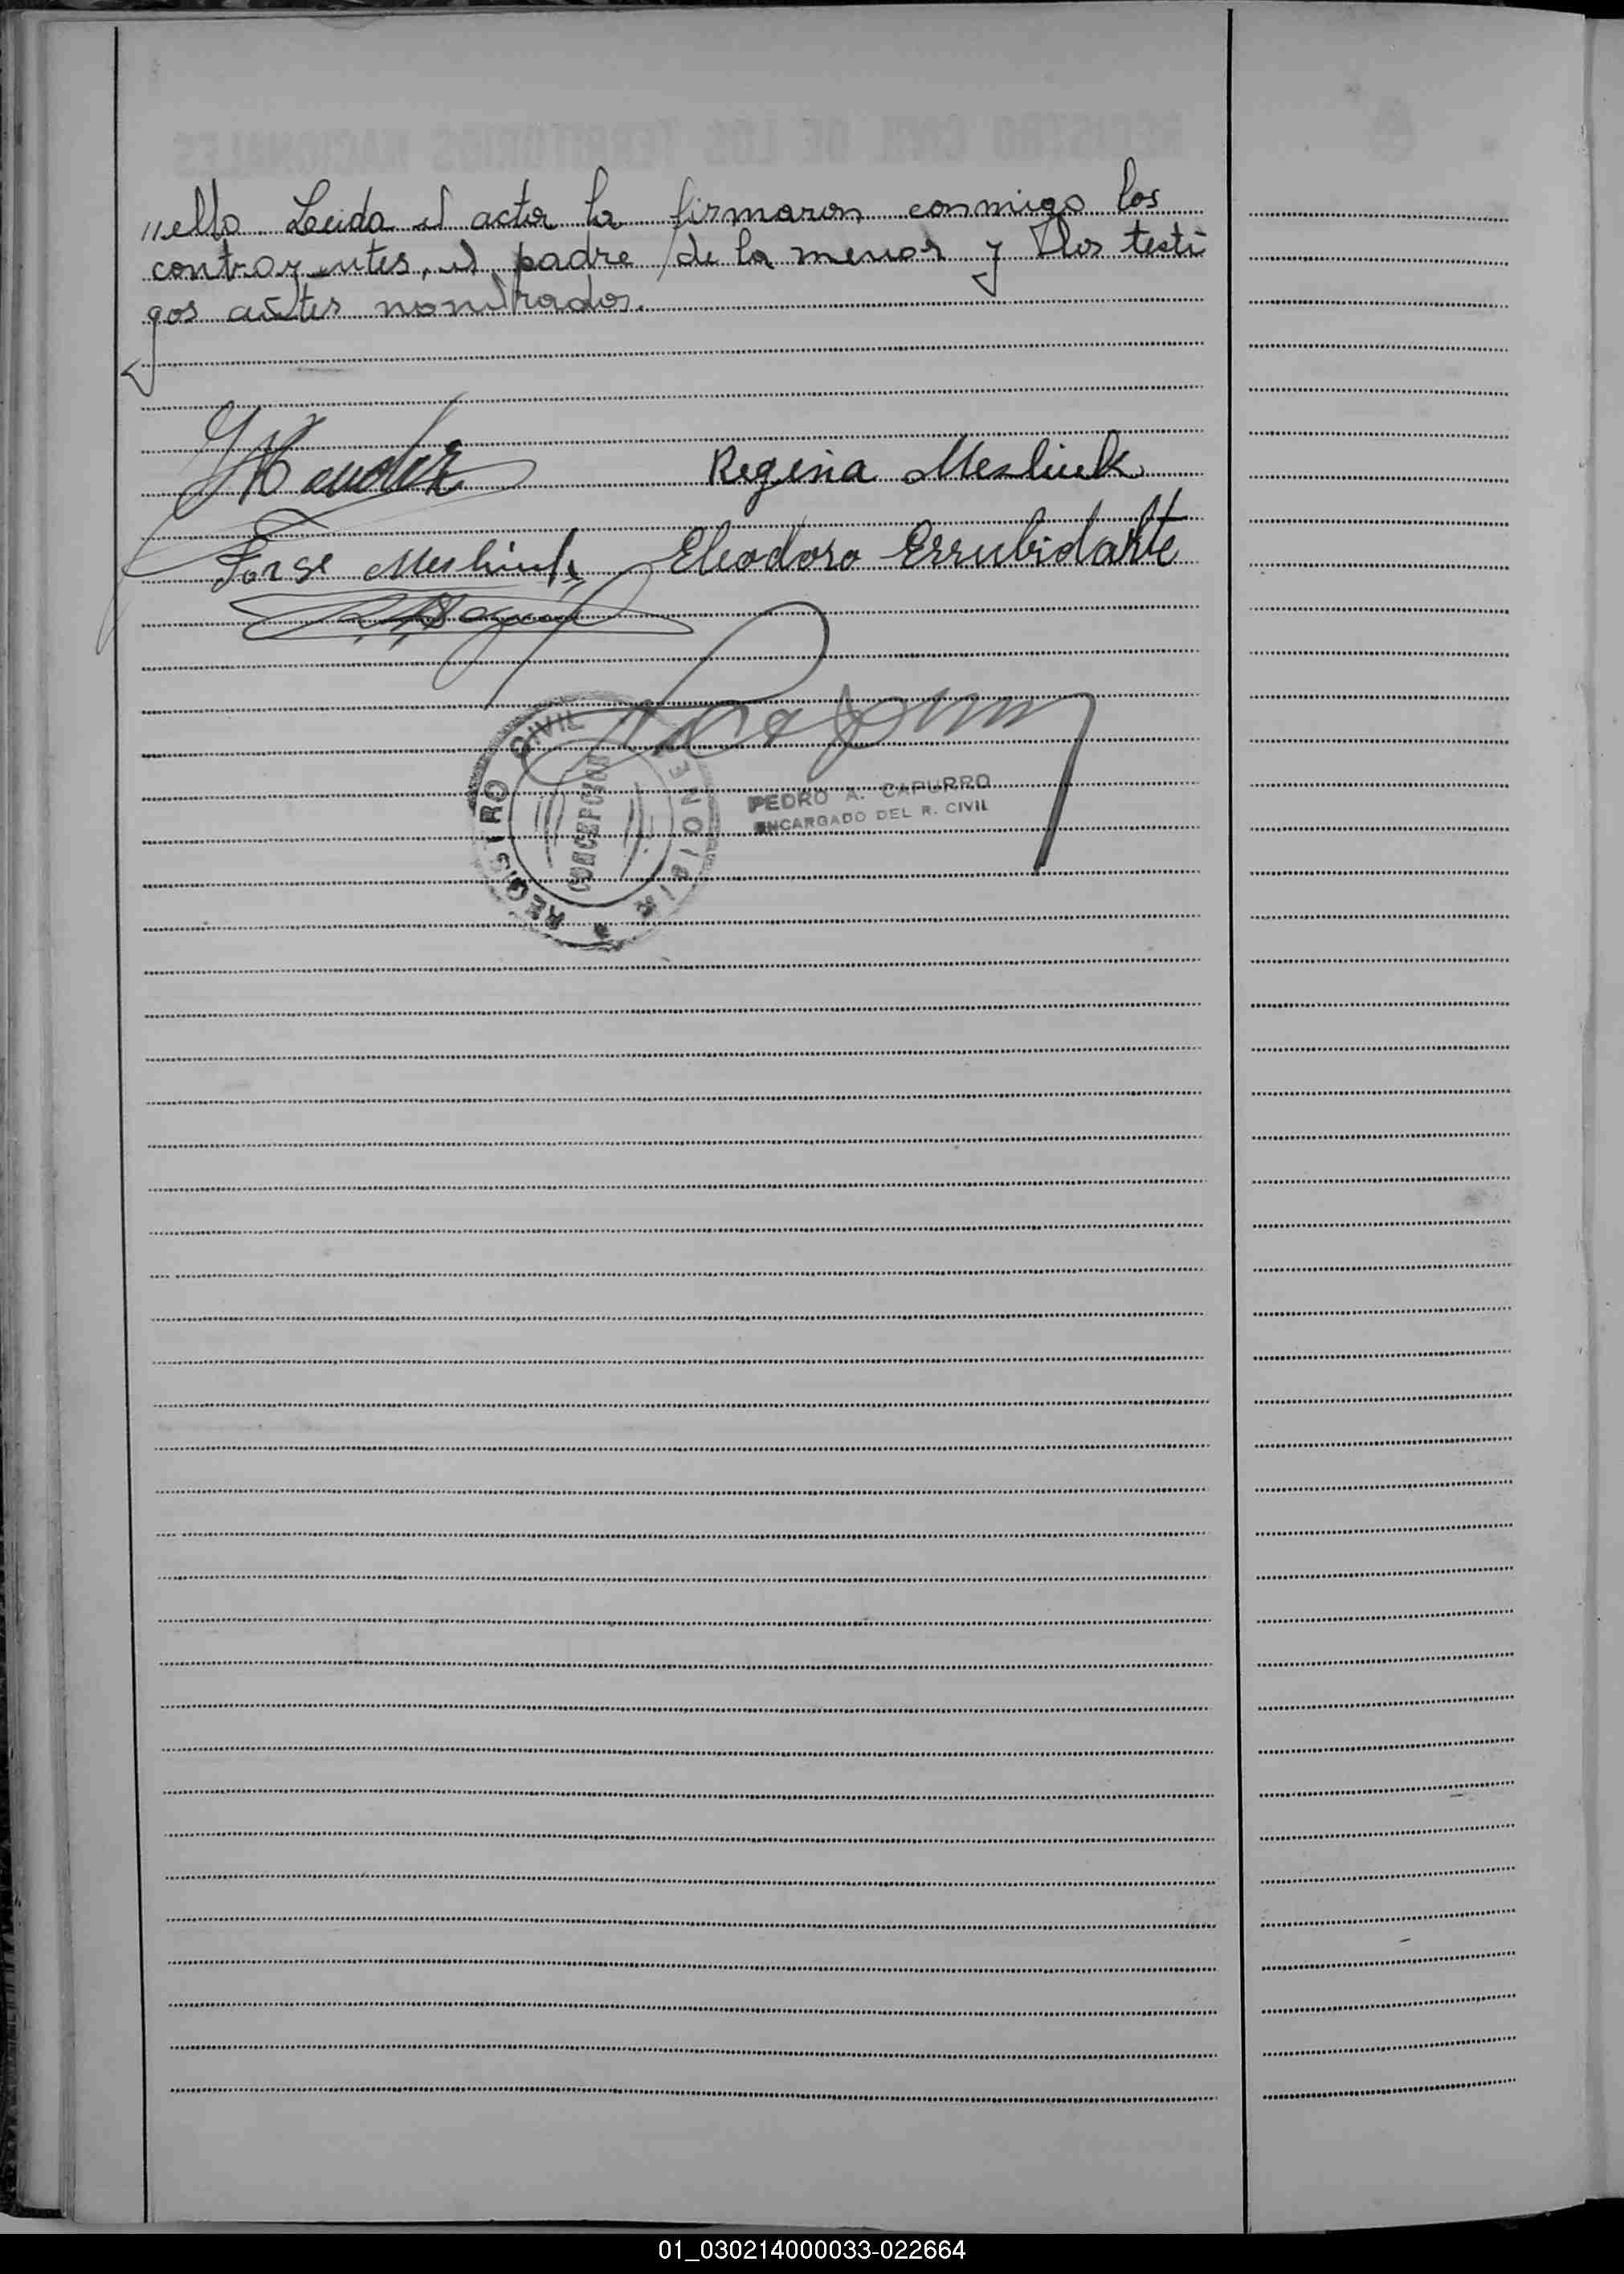 "ello. Leida el acta la firmaron conmigo los
contrayentes, el padre de la menor y los testi
gos antes nombrados.
Regina Meshiuk
Jorge Meshiuk Eleodoro Errubidarte
REGISTRO CIVIL
CONCEPCION
MISIONES
PEDRO A. CAPURRO
ENCARGADO DEL R. CIVIL
01_030214000033-022664